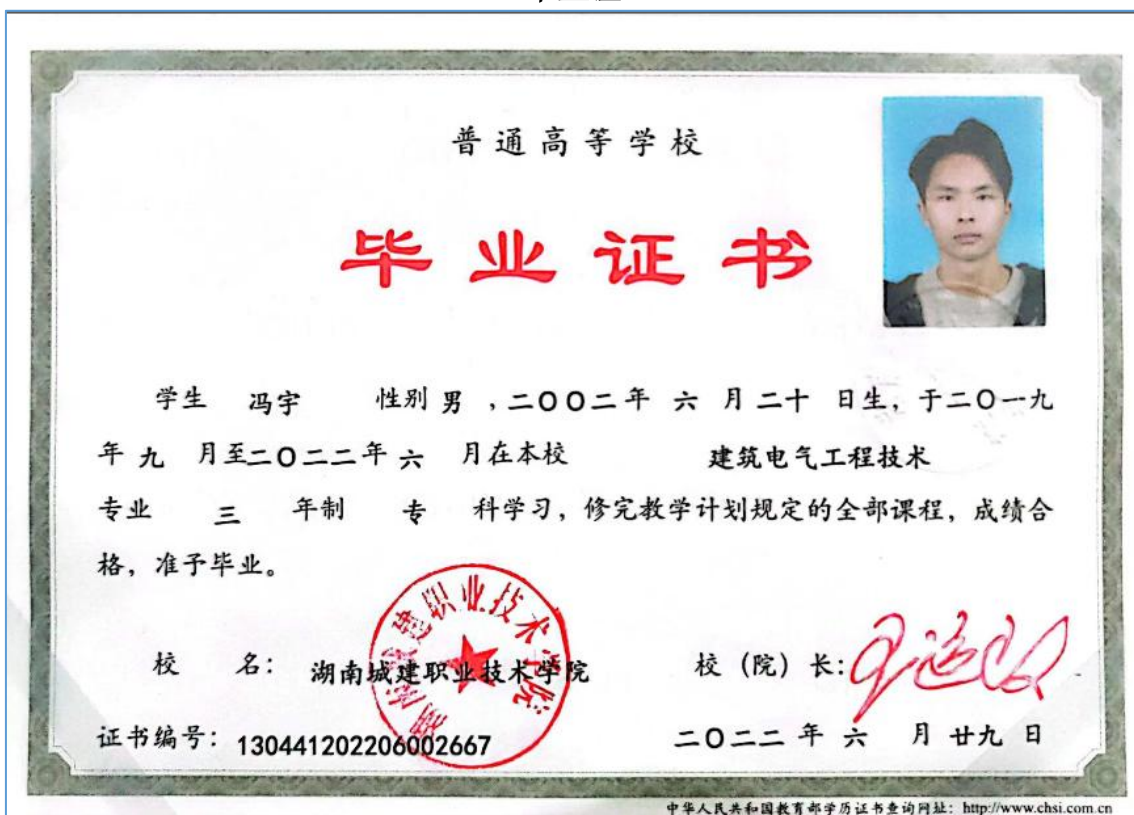 普通高等学校
毕业证书
学生 冯宇 性别 男 ,二〇〇二年 六 月 二十 日生, 于二〇一九
年 九 月至二〇二二年 六 月在本校 建筑电气工程技术
专业 三 年制 专 科学习, 修完教学计划规定的全部课程, 成绩合
格, 准予毕业。
校 名: 湖南城建职业技术学院 校 (院) 长:
湖南城建职业技术学院
证书编号: 130441202206002667 二〇二二 年 六 月 廿九 日
中华人民共和国教育部学历证书查询网址: http://www.chsi.com.cn